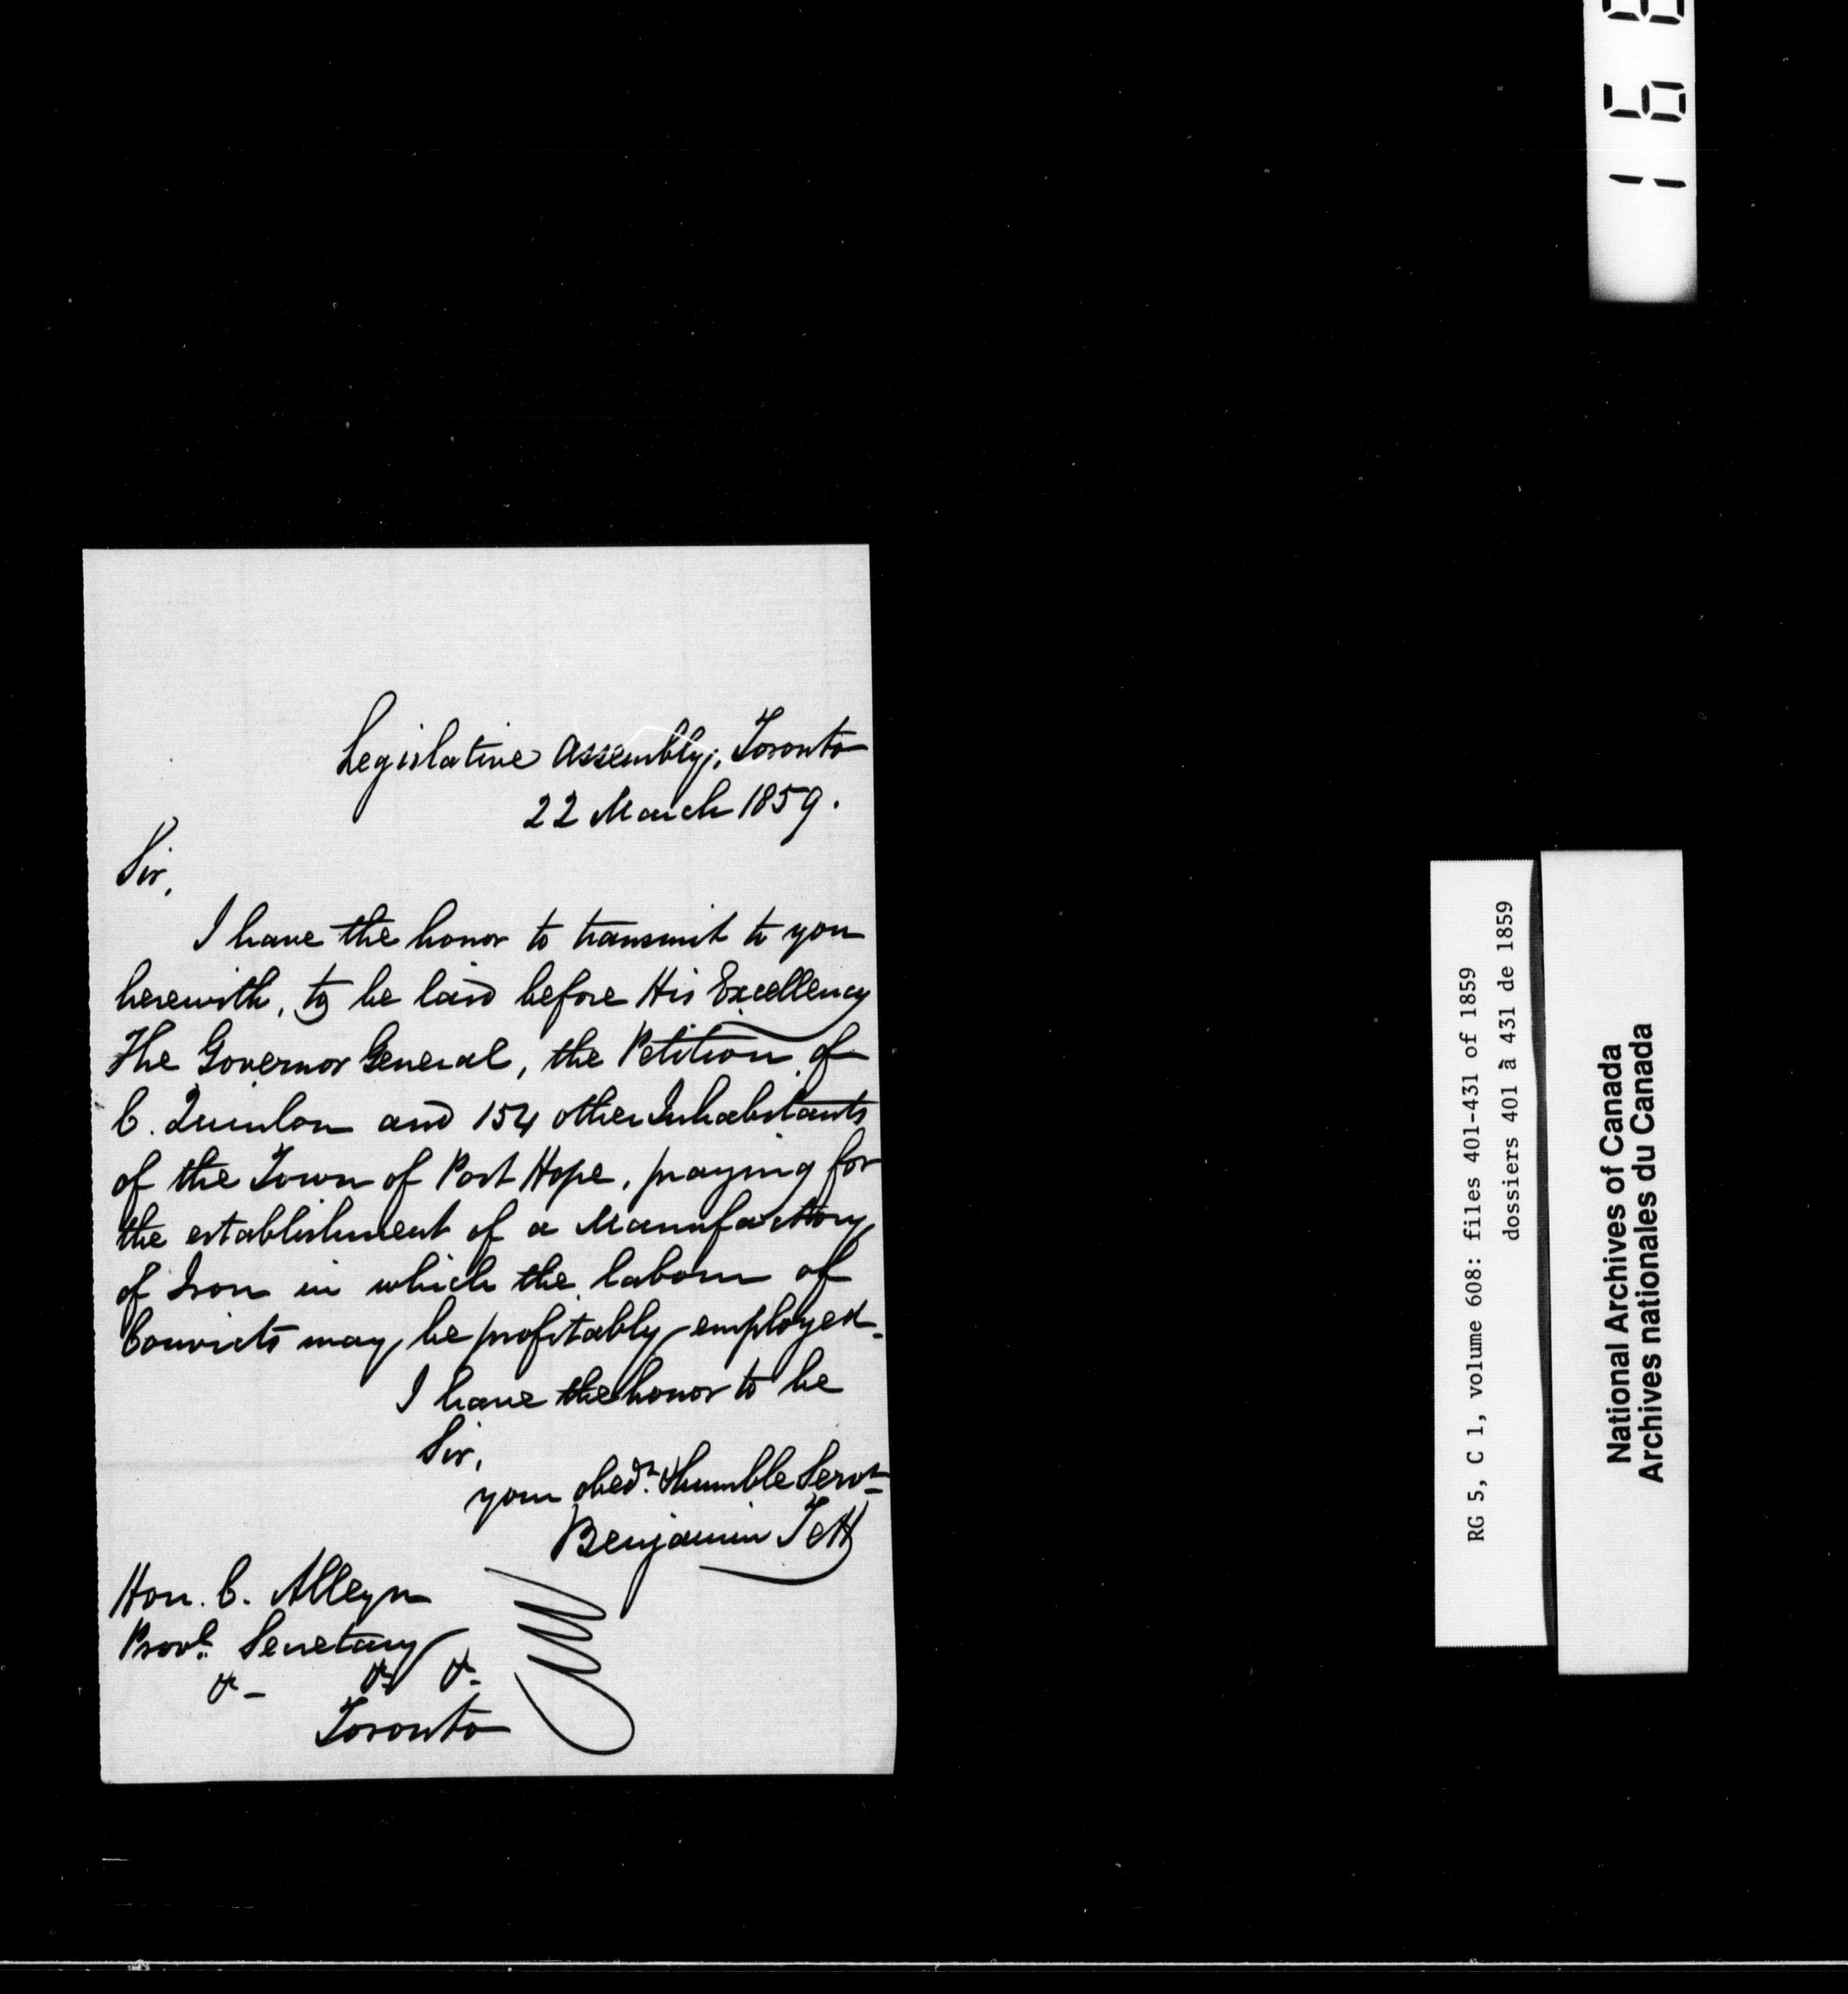 Legislative Assembly, Toronto
22 March 1859.
Sir,
I have the honor to transmit to you
herewith, to be laid before His Excellency
The Governor General, the Petition of
C. Quinlan and 154 other Inhabitants
of the Town of Port Hope, praying for
the establishment of a Manufactory
of Iron in which the labour of
Convicts may be profitably employed.
I have the honor to be
Sir,
your obedt. humble Servt
Benjamin Tett
Hon. C. Alleyn
Provl. Secretary
& & &
Toronto
RG 5, C 1, volume 608: files 401-431 of 1859
dossiers 401 à 431 de 1859
National Archives of Canada
Archives nationales du Canada